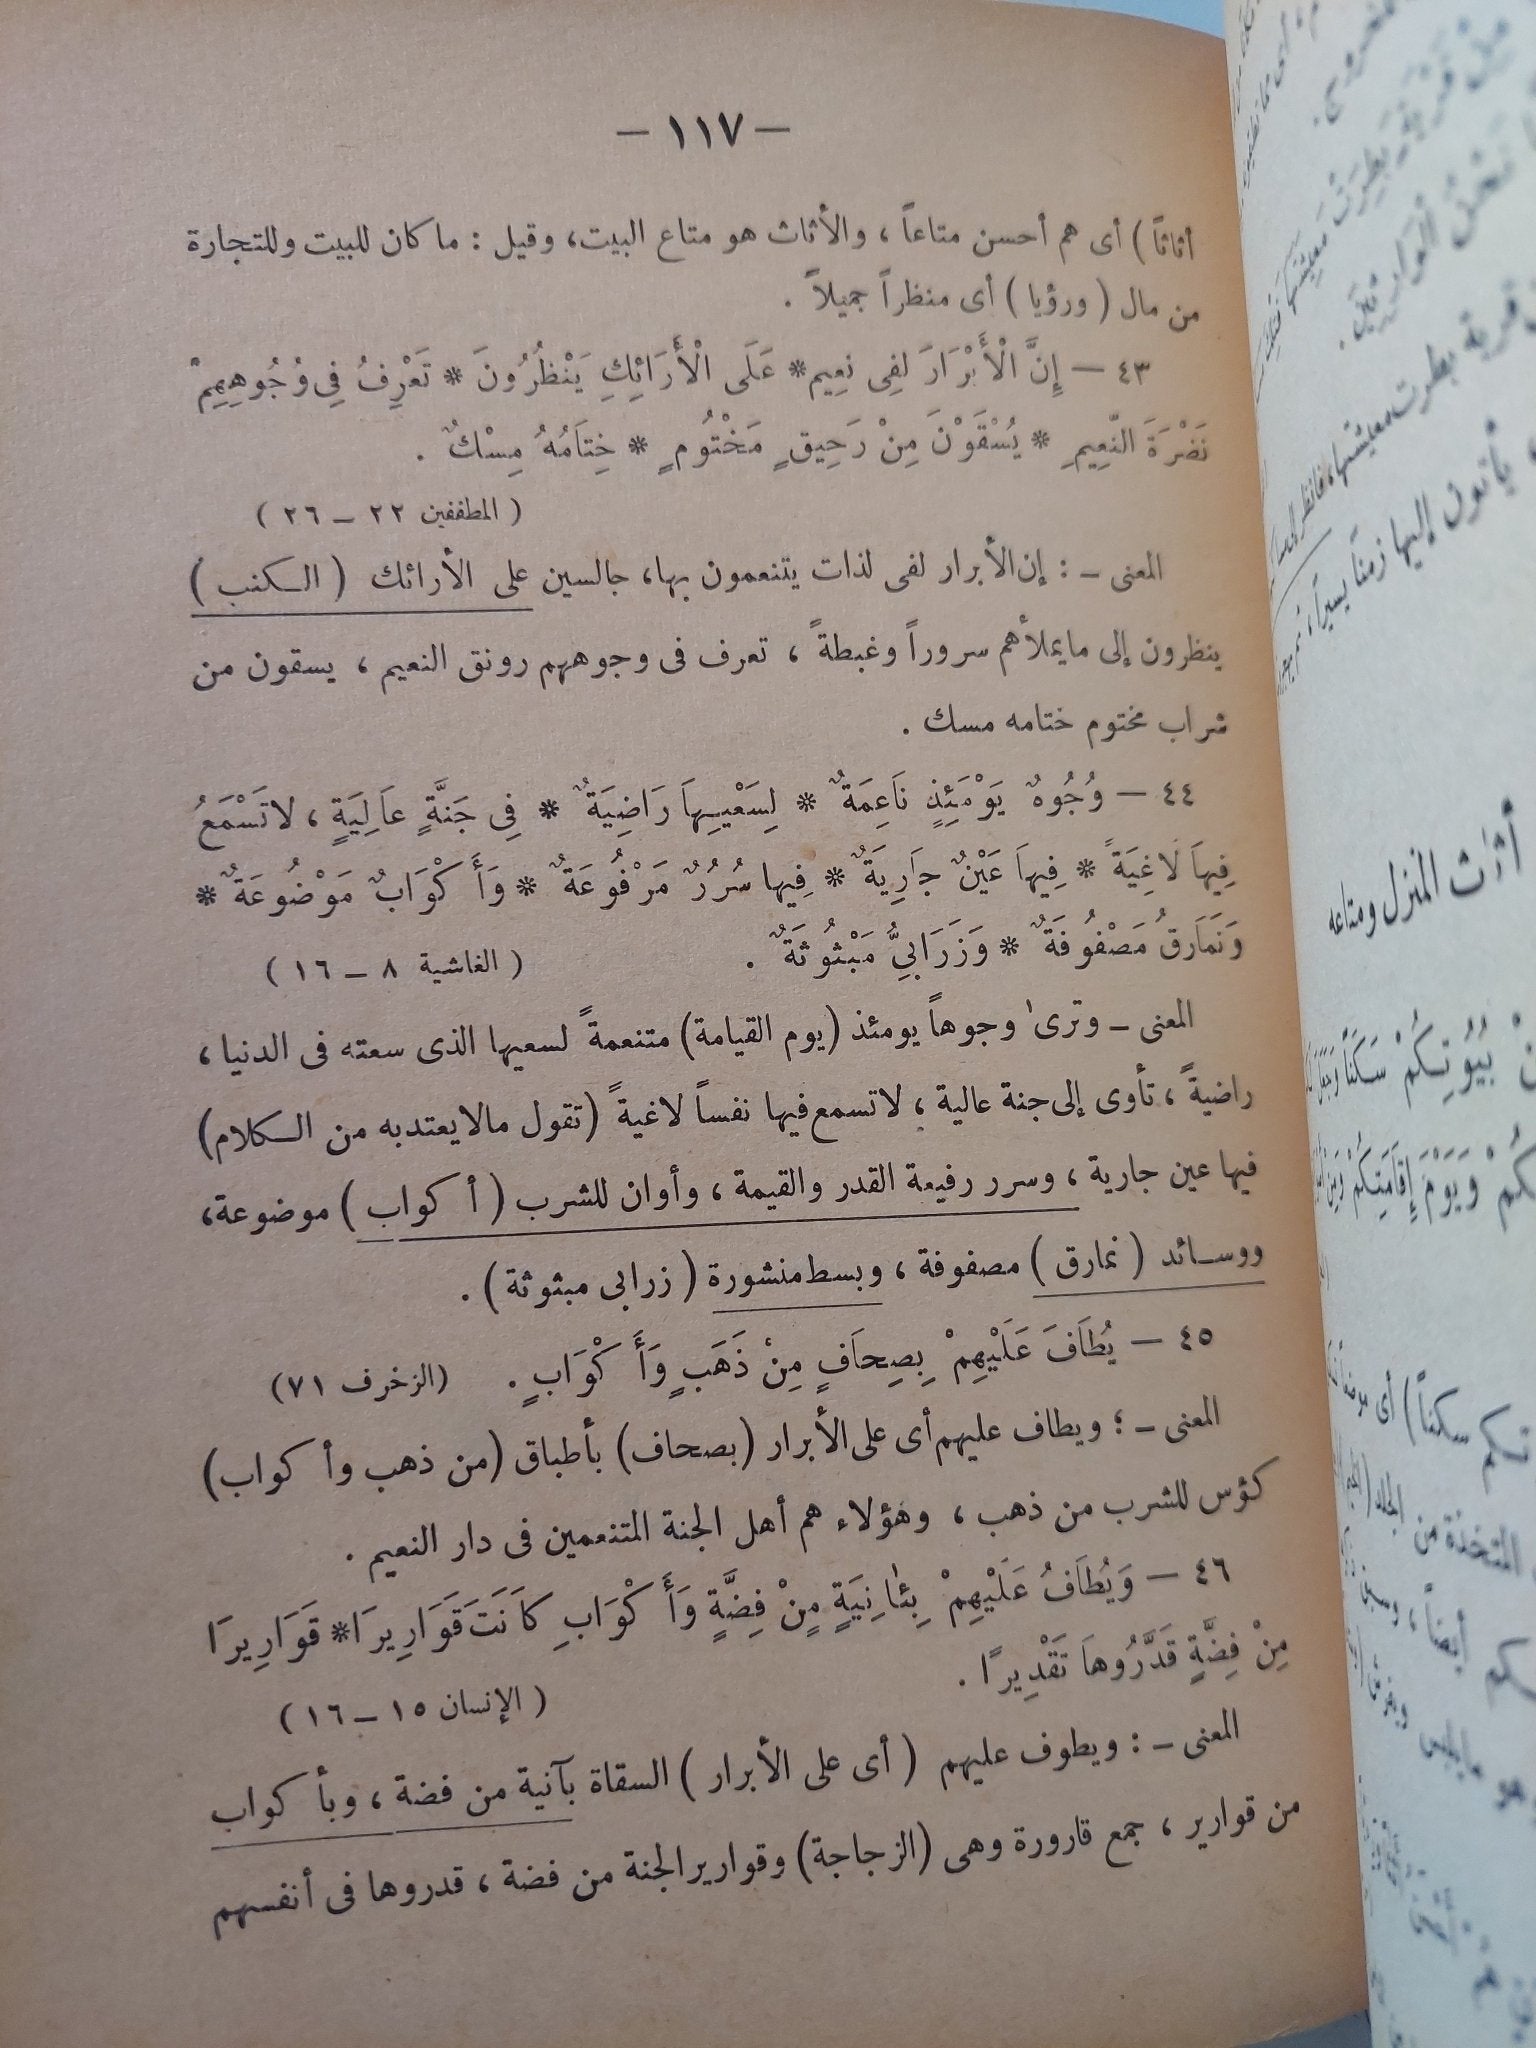 — ١١٧ —
أثاثاً ) أى هم أحسن متاعاً ، والأثاث هو متاع البيت، وقيل : ما كان للبيت وللتجارة
من مال ( ورؤيا ) أى منظراً جميلاً .
٤٣ — إِنَّ الْأَبْرَارَ لَفِى نَعِيم * عَلَى الْأَرَائِكِ يَنْظُرُونَ * تَعْرِفُ فِى وُجُوهِهِمْ
نَضْرَةَ النَّعِيمِ * يُسْقَوْنَ مِنْ رَحِيقٍ مَخْتُومٍ * خِتَامُهُ مِسْكٌ .
( المطففين ٢٢ – ٢٦ )
المعنى – : إن الأبرار لفى لذات يتنعمون بها، جالسين على الأرائك ( الكنب )
ينظرون إلى ما يملأهم سروراً وغبطةً ، تعرف فى وجوههم رونق النعيم ، يسقون من
شراب مختوم ختامه مسك .
٤٤ — وُجُوهٌ يَوْمَئِذٍ نَاعِمَةٌ * لِسَعْيِهَا رَاضِيَةٌ * فِى جَنَّةٍ عَالِيَةٍ ، لاتَسْمَعُ
فِيهَا لَاغِيَةً * فِيهَا عَيْنٌ جَارِيَةٌ * فِيها سُرُرٌ مَرْفُوعَةٌ * وَأَكْوَابٌ مَوْضُوعَةٌ *
وَنَمَارِقُ مَصْفُوفَةٌ * وَزَرَابِىُّ مَبْثُوثَةٌ .
( الغاشية ٨ – ١٦ )
المعنى – وترىٰ وجوهاً يومئذ (يوم القيامة) متنعمةً لسعيها الذى سعته فى الدنيا ،
راضيةً ، تأوى إلى جنة عالية ، لا تسمع فيها نفساً لاغيةً (تقول مالا يعتد به من الكلام)
فيها عين جارية ، وسرر رفيعة القدر والقيمة ، وأوان للشرب ( أكواب ) موضوعة،
ووسائد ( نمارق ) مصفوفة ، وبسط منشورة ( زرابى مبثوثة ) .
٤٥ — يُطَافَ عَلَيْهِمْ بِصِحَافٍ مِنْ ذَهَبٍ وَأَكْوَابٍ . (الزخرف ٧١)
المعنى – ؛ ويطاف عليهم أى على الأبرار (بصحاف) بأطباق (من ذهب وأكواب)
كؤس للشرب من ذهب ، وهؤلاء هم أهل الجنة المتنعمين فى دار النعيم .
٤٦ — وَيُطَافُ عَلَيْهِمْ بِئَانِيَةٍ مِنْ فِضَّةٍ وَأَكْوَابٍ كَانَتَ قَوَارِيرَا * قَوَارِيرَا
مِنْ فِضَّةٍ قَدَّرُوهَا تَقْدِيرًا .
( الإنسان ١٥ – ١٦ )
المعنى – : ويطوف عليهم ( أى على الأبرار ) السقاة بآنية من فضة ، وبأكواب
من قوارير ، جمع قارورة وهى (الزجاجة) وقوارير الجنة من فضة ، قدروها فى أنفسهم
أثاث المنزل ومتاعه